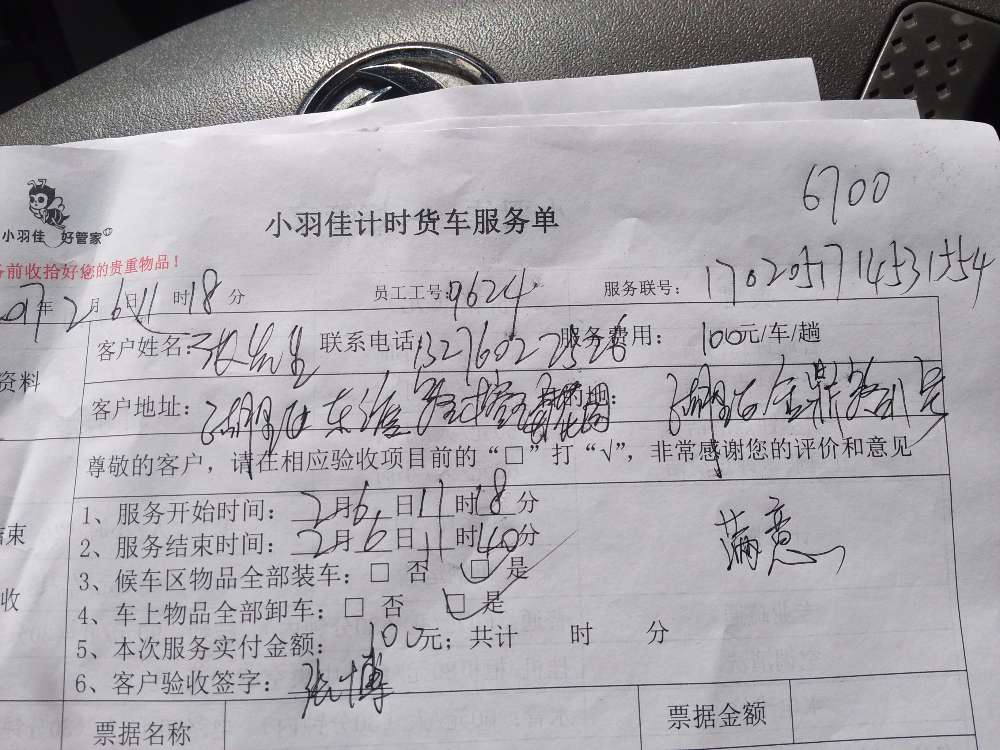 6700
小羽佳计时货车服务单
小羽佳 好管家
前收拾好您的贵重物品！
年2月6日11时18分 员工工号：9624 服务联号：1702051714531554
资料
客户姓名：张先生 联系电话：13276022526 服务费用：100元/车/趟
客户地址：湖里区东 目的地：湖里区金鼎路 号
尊敬的客户，请在相应验收项目前的“□”打“√”，非常感谢您的评价和意见
1、服务开始时间：2月6日11时18分
结束 2、服务结束时间：2月6日11时40分
满意
3、候车区物品全部装车：□ 否 □ 是
收 4、车上物品全部卸车：□ 否 □ 是
5、本次服务实付金额：100元；共计 时 分
6、客户验收签字：张博
票据名称 票据金额